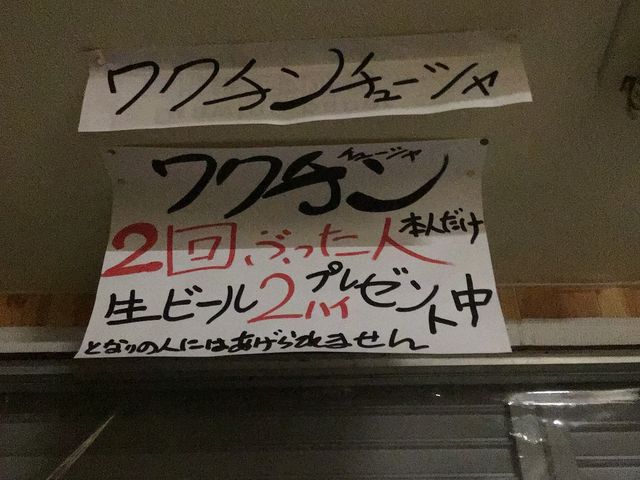 ワクチンチューシャ
ワクチンチューシャ
2回ぶった人本人だけ
生ビール2ハイプレゼント中
となりの人にはあげられません